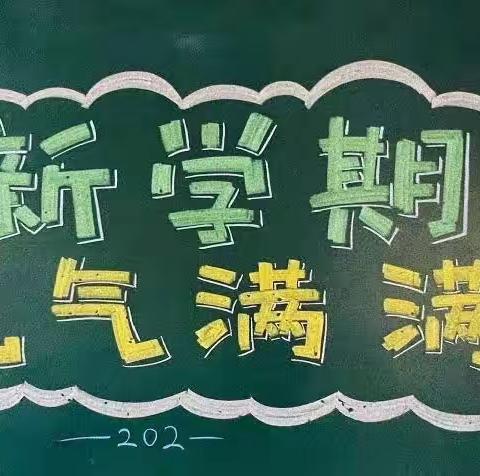 新学期
气满满
—202—